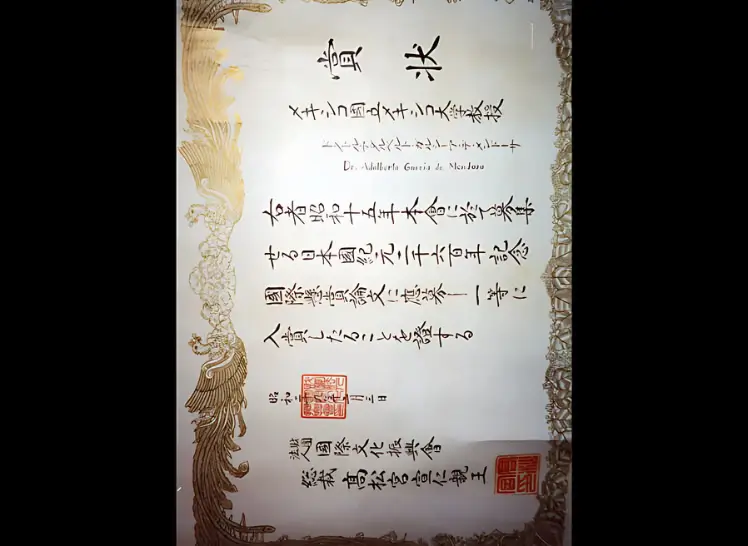 賞状
メキシコ國立メキシコ大学教授
ドクトル・アダルベルト・ガルシーア・デ・メンドーサ
Dr. Adalberto García de Mendoza
右者昭和十五年本會に於て募集
せる日本國紀元二千六百年記念
國際懸賞論文に應募し一等に
入賞したることを證する
昭和二十九年 月三日
財團法人國際文化振興會
総裁 高松宮宣仁親王